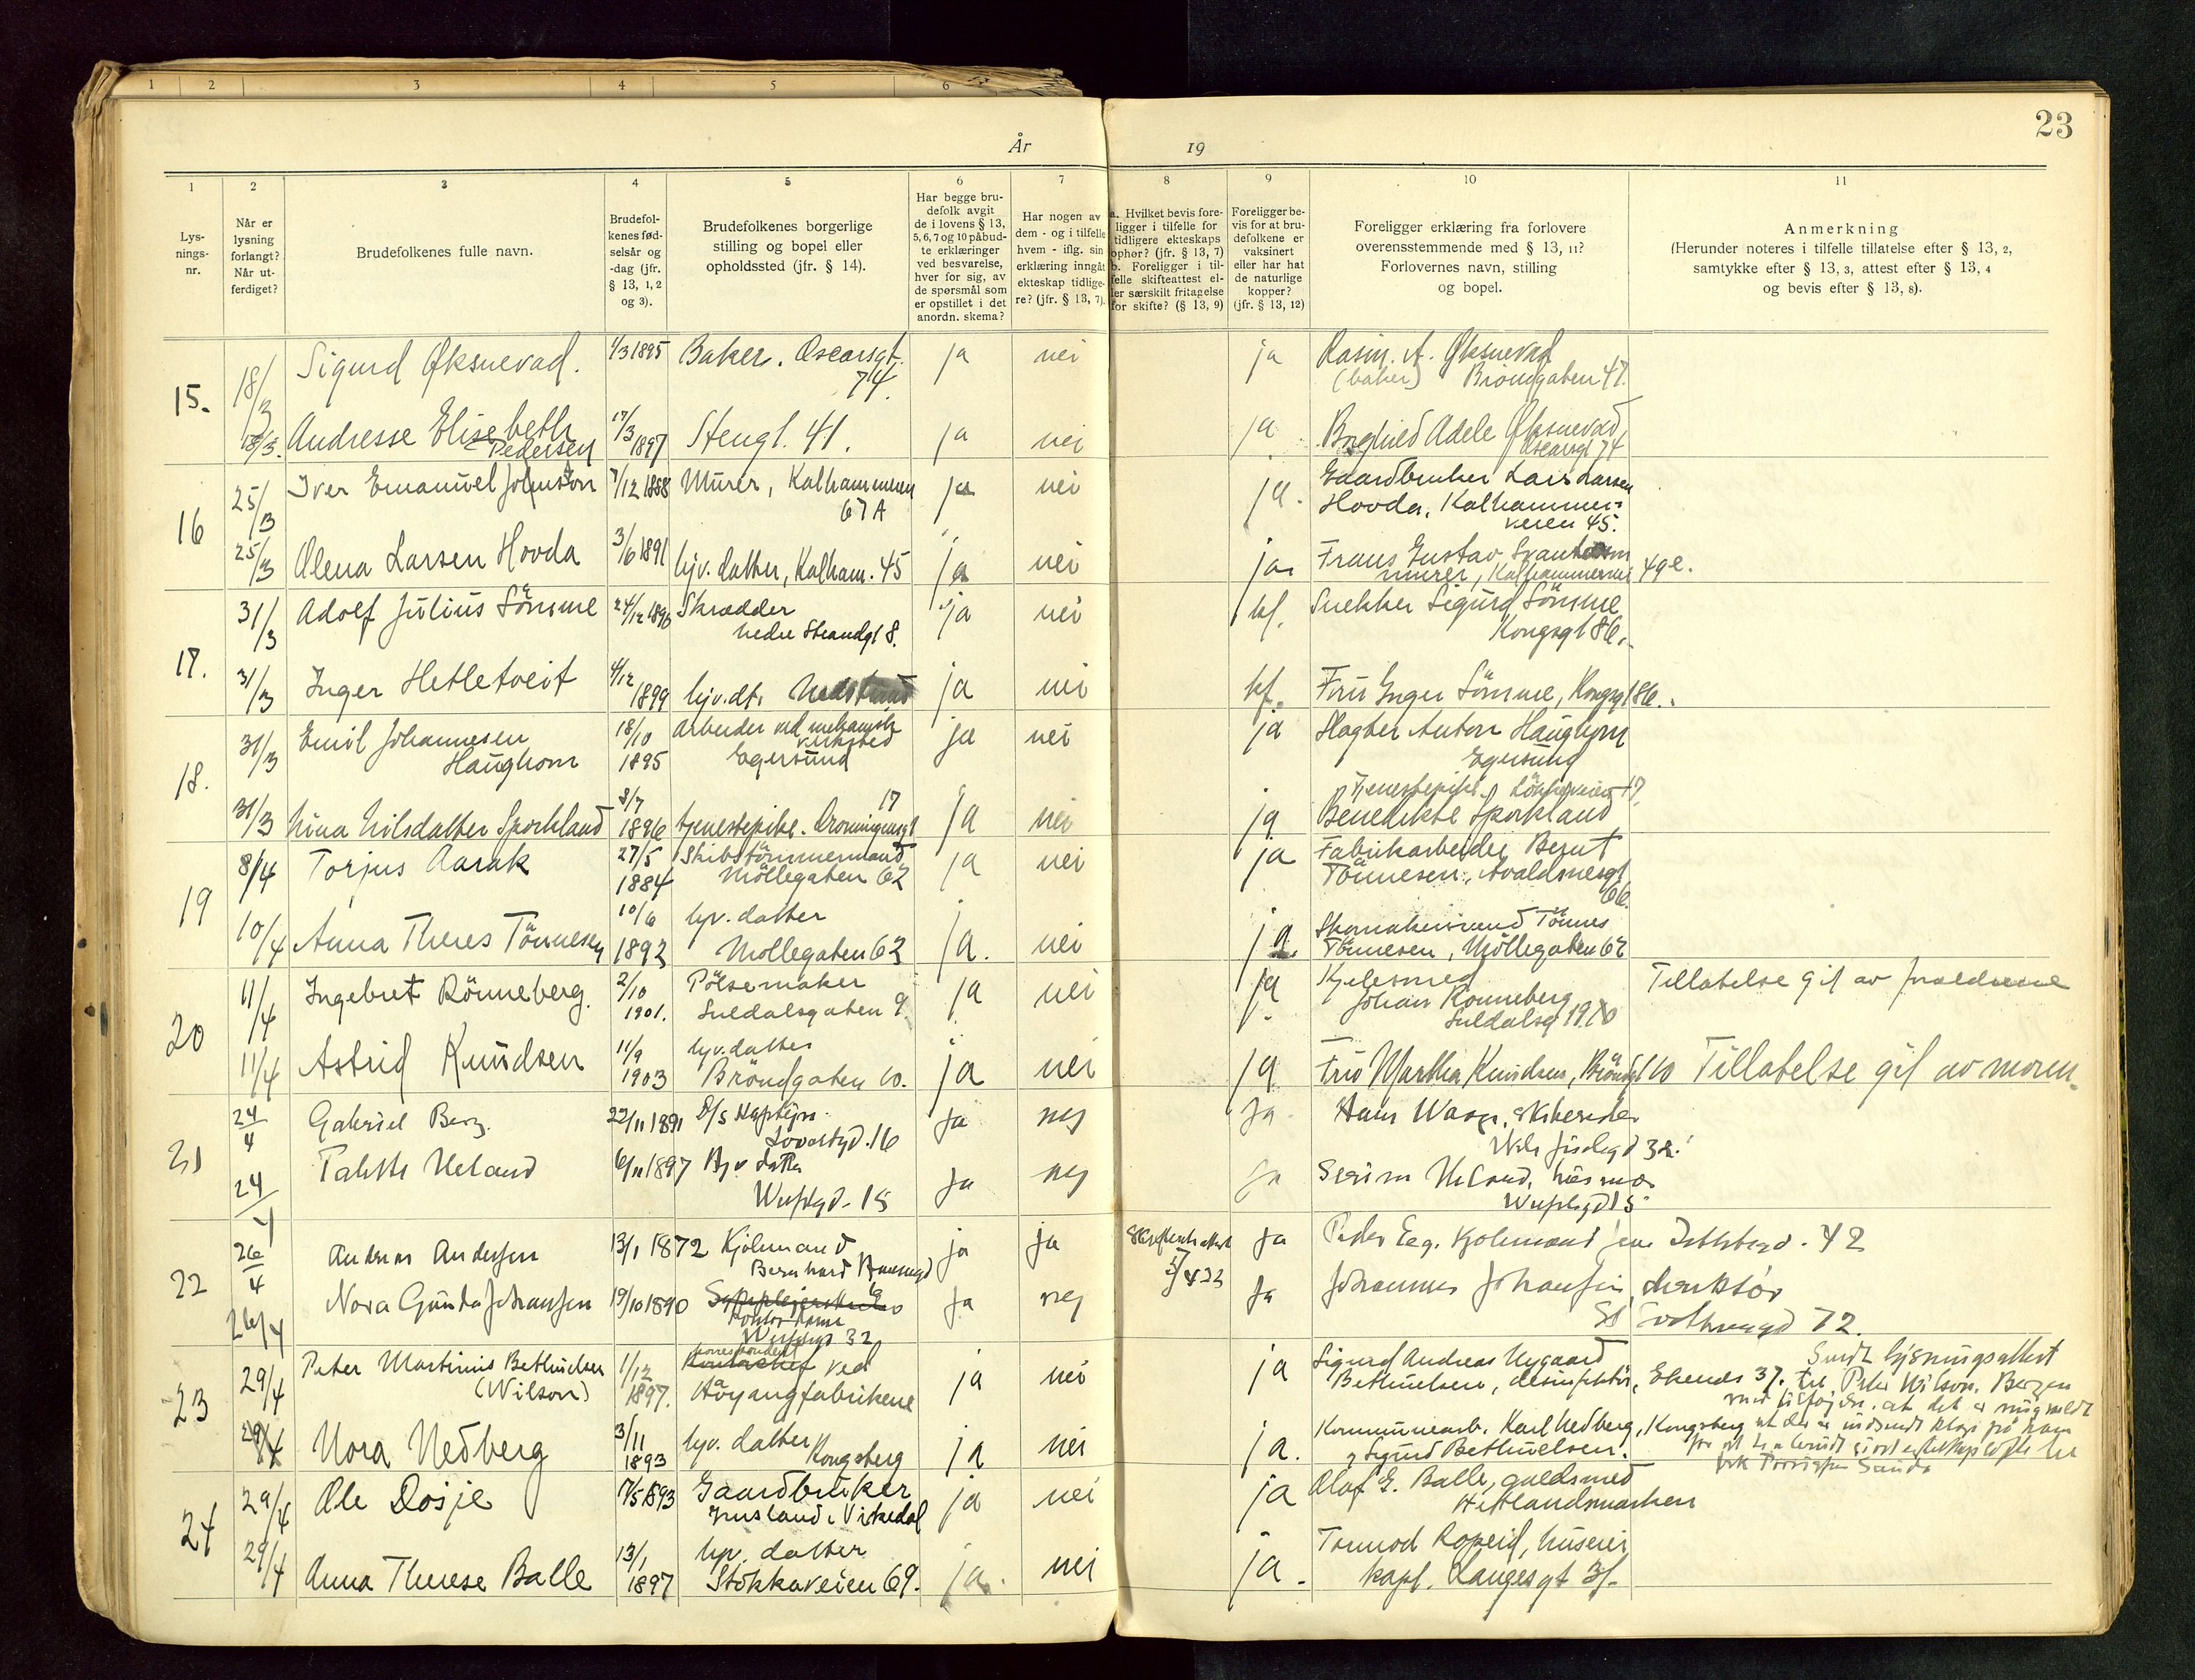 1 2 3 4 5 6
23
År 19
1 2 3 4 5 6 7 8 9 10 11
Lys-
nings-
nr.
Når er
lysning
forlangt?
Når ut-
ferdiget?
Brudefolkenes fulle navn.
Brudefol-
kenes fød-
selsår og
-dag (jfr.
§ 13, 1, 2
og 3).
Brudefolkenes borgerlige
stilling og bopel eller
opholdssted (jfr. § 14).
Har begge bru-
defolk avgit
de i lovens § 13,
5, 6, 7 og 10 påbud-
te erklæringer
ved besvarelse,
hver for sig, av
de spørsmål som
er opstillet i det
anordn. skema?
Har nogen av
dem - og i tilfelle
hvem - iflg. sin
erklæring inngåt
ekteskap tidlige-
re? (jfr. § 13, 7).
a. Hvilket bevis fore-
ligger i tilfelle for
tidligere ekteskaps
ophør? (jfr. § 13, 7)
b. Foreligger i til-
felle skifteattest el-
ler særskilt fritagelse
for skifte? (§ 13, 9)
Foreligger be-
vis for at bru-
defolkene er
vaksinert
eller har hat
de naturlige
kopper?
(jfr. § 13, 12)
Foreligger erklæring fra forlovere
overensstemmende med § 13, 11?
Forlovernes navn, stilling
og bopel.
Anmerkning
(Herunder noteres i tilfelle tillatelse efter § 13, 2,
samtykke efter § 13, 3, attest efter § 13, 4
og bevis efter § 13, 8).
15. 18/3 Sigurd Øksnevad. 1/3 1895 Baker. Oscarsgt. 74. ja nei ja Rasm. A. Øksnevad
(baker) Bröndgaten 47.
18/3. Andresse Elisebeth Pedersen 17/3 1897 Stengt. 41. ja nei ja Borghild Adele Øksnevad,
Oscarsgt 74
16 25/3 Iver Emanuel Johnson 7/12 1888 Murer, Kalhammeren 67 A ja nei ja. Gaardbruker Lars Larsen
Hovda, Kalhammer-
veien 45.
25/3 Olena Larsen Hovda 3/6 1891 hjv. datter, Kalham. 45 ja nei ja Frans Gustav
murer, 49 e.
17. 31/3 Adolf Julius Sömme 24/12 1896 Skrædder
nedre Strandgt 8. ja nei kf. Snekker Sigurd Sömme
Kongsgt 86.
31/3 Inger Hetletveit 4/12 1899 hjv. dt. Nedstrand ja nei kf. Fru Inger Sömme, Kongsgt 86.
18. 31/3 Emil Johannesen
Haughom 18/10 1895 Arbeider ved mekanisk
verksted
Egersund ja nei ja Slagter Anton Haughom
Egersund
31/3 Nina Nilsdatter Sporkland 8/7 1896 tjenestepike. Dronningensgt 17 ja nei ja Tjenestepike Lökkeveien 17.
Benedikte Sporkland
19 8/4 Torjus Aarak 27/5 1884 Skibstömmermand
Möllegaten 62 ja nei ja Fabrikarbeider Berut
Tönnesen, Avaldsnesgt
66.
10/4 Anna Theres Tönnesen 10/6 1892 hjv. datter
Möllegaten 62 ja. nei ja. Skomakersvend Tönnes
Tönnesen, Möllegaten 62
20 11/4 Ingebret Rönneberg. 2/10 1901. Pölsemaker
Suldalsgaten 9 ja nei ja. Kjelesmed
Johan Ronneberg
Suldalsg Tillatelse git av foreldrene
11/4 Astrid Knudsen 11/9 1903 hjv. datter
Bröndgaten 60. ja nei ja Fru Martha Knudsen, Bröndgt 60 Tillatelse git av moren.
21 24/4 Gabriel Berg. 22/11 1891 D/S Kaptejn
16 Ja nej Ja Hans
32.
24/4 Heland 6/11 1897 Hjv datter
15 Ja nej Ja Heland, husmor
15
22 26/4 Andreas Andersen 13/1 1872 Kjölmand
Bernhard ja ja Ja Peder Eeg. Kjolmand 42
26/4 Nora Gunda Johansen 19/10 1890
Kontordame
32 Ja nej Ja Johannes Johansen,
72.
23 29/4 Peter Martinius Bethuelsen
(Wilson) 1/12 1897. korrespondent ved
Höyangfabrikene ja nei ja Sigurd Andreas Nygaard
Bethuelsen, desinfektör, Ekends 37. Sendt lysningsattest
til Peter Wilson. Bergen
29/4 Nora Nedberg 3/11 1893 hjv. datter
Kongsberg ja nei ja. Kommunearb. Karl Nedberg, Kongsberg
Sigurd Bethuelsen.
24 29/4 Ole Dosje 7/5 1893 Gaardbruker
i Vikedal ja nei ja Olaf G. Balle, guldsmed
Hetlandsmarken
29/4 Anna Therese Balle 13/1 1897 hjv. datter
Stokkaveien 69. ja. nei ja. Tormod Ropeid, huseier
kapt. Langesgt 31.